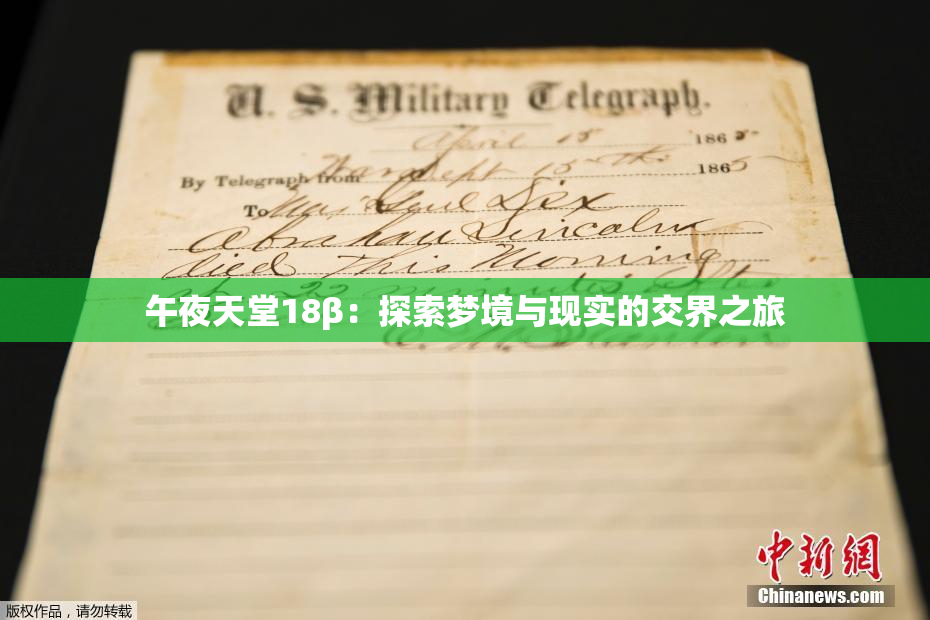 U. S. Military Telegraph.
April 15 1865
By Telegraph from War Dept 15th 1865
To Maj Genl Dix
Abraham Lincoln
died this Morning
at 22 minutes after
午夜天堂18β：探索梦境与现实的交界之旅
中新網
Chinanews.com
版权作品，请勿转载